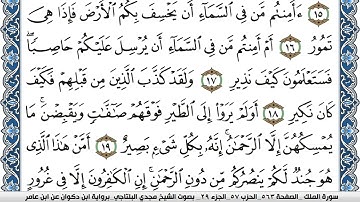 ١٥ ءَأَمِنتُم مَّن فِى ٱلسَّمَآءِ أَن يَخْسِفَ بِكُمُ ٱلْأَرْضَ فَإِذَا هِىَ
تَمُورُ ١٦ أَمْ أَمِنتُم مَّن فِى ٱلسَّمَآءِ أَن يُرْسِلَ عَلَيْكُمْ حَاصِبًا
فَسَتَعْلَمُونَ كَيْفَ نَذِيرِ ١٧ وَلَقَدْ كَذَّبَ ٱلَّذِينَ مِن قَبْلِهِمْ فَكَيْفَ
كَانَ نَكِيرِ ١٨ أَوَلَمْ يَرَوْا۟ إِلَى ٱلطَّيْرِ فَوْقَهُمْ صَٰٓفَّٰتٍ وَيَقْبِضْنَ ۚ مَا
يُمْسِكُهُنَّ إِلَّا ٱلرَّحْمَٰنُ ۚ إِنَّهُۥ بِكُلِّ شَىْءٍۭ بَصِيرٌ ١٩ أَمَّنْ هَٰذَا ٱلَّذِى
هُوَ جُندٌ لَّكُمْ يَنصُرُكُم مِّن دُونِ ٱلرَّحْمَٰنِ ۚ إِنِ ٱلْكَٰفِرُونَ إِلَّا فِى غُرُورٍ
سورة الملك . الصفحة ٥٦٣ . الحزب ٥٧ . الجزء ٢٩ . بصوت الشيخ مجدي البلتاجي . برواية ابن ذكوان عن ابن عامر